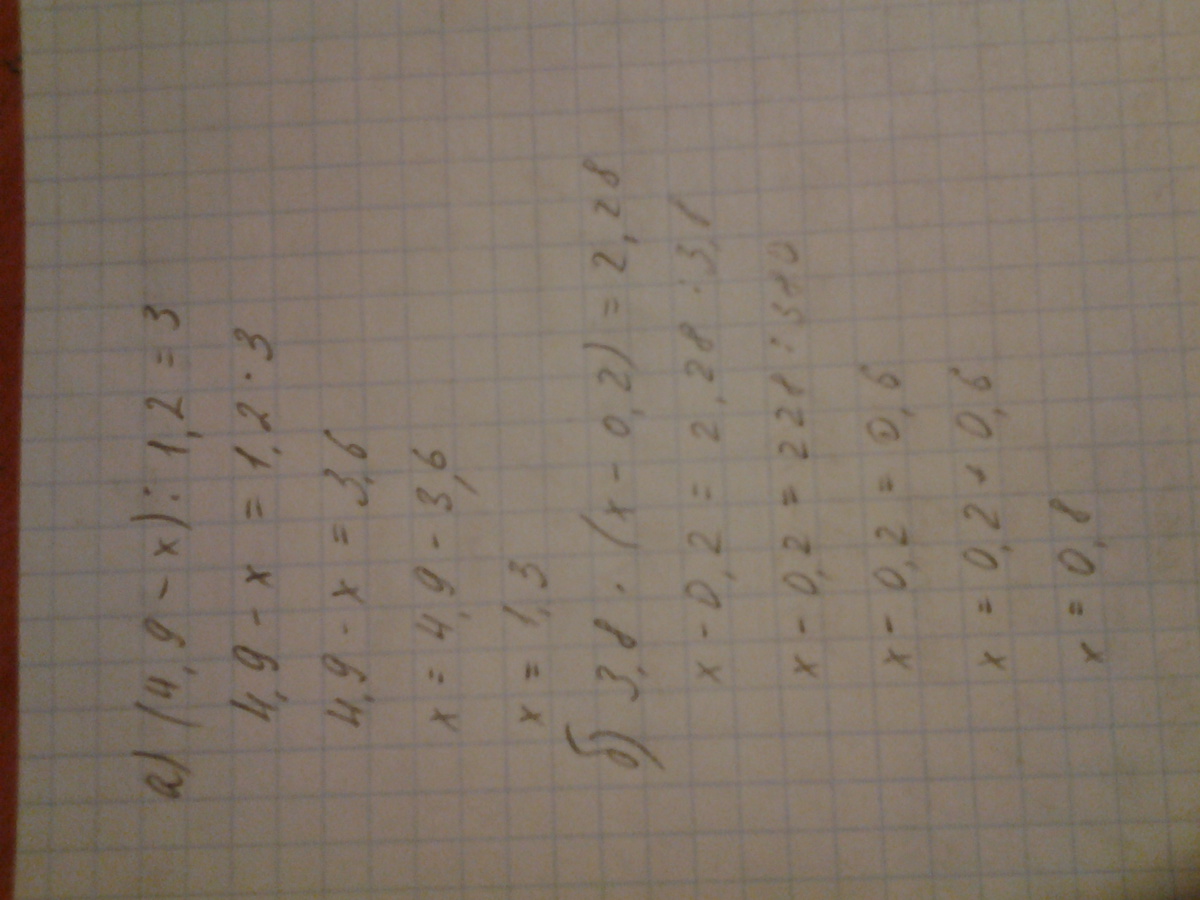 а) (4,9 - x) : 1,2 = 3
4,9 - x = 1,2 · 3
4,9 - x = 3,6
x = 4,9 - 3,6
x = 1,3
б) 3,8 · (x - 0,2) = 2,28
x - 0,2 = 2,28 : 3,8
x - 0,2 = 228 : 380
x - 0,2 = 0,6
x = 0,2 + 0,6
x = 0,8